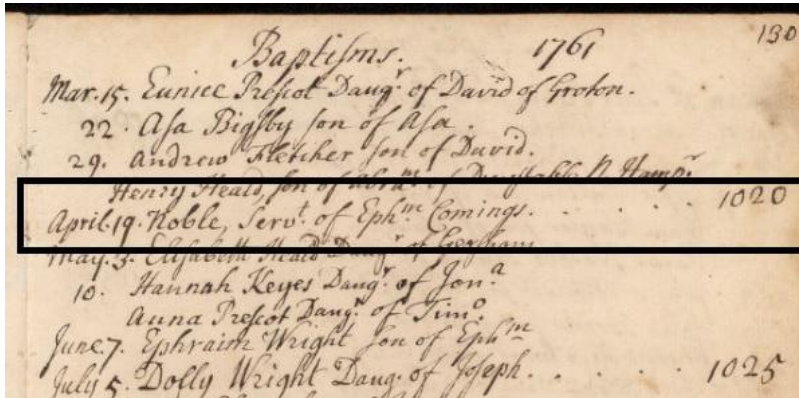 130
Baptisms. 1761
Mar. 15. Eunice Prescot Daugr. of David of Groton.
22. Asa Bigsby son of Asa.
29. Andrew Fletcher son of David.
Henry Heald, son of Abram. of Dunstable N Hampr.
April. 19. Noble, Servt. of Ephm Comings. . . . . . 1020
May. 3. Elisabeth Heald Daugr of Gershom
10. Hannah Keyes Daugr. of Jona.
Anna Prescot Daugr. of Timo.
June. 7. Ephraim Wright son of Ephm
July 5. Dolly Wright Daug. of Joseph. . . . . . 1025